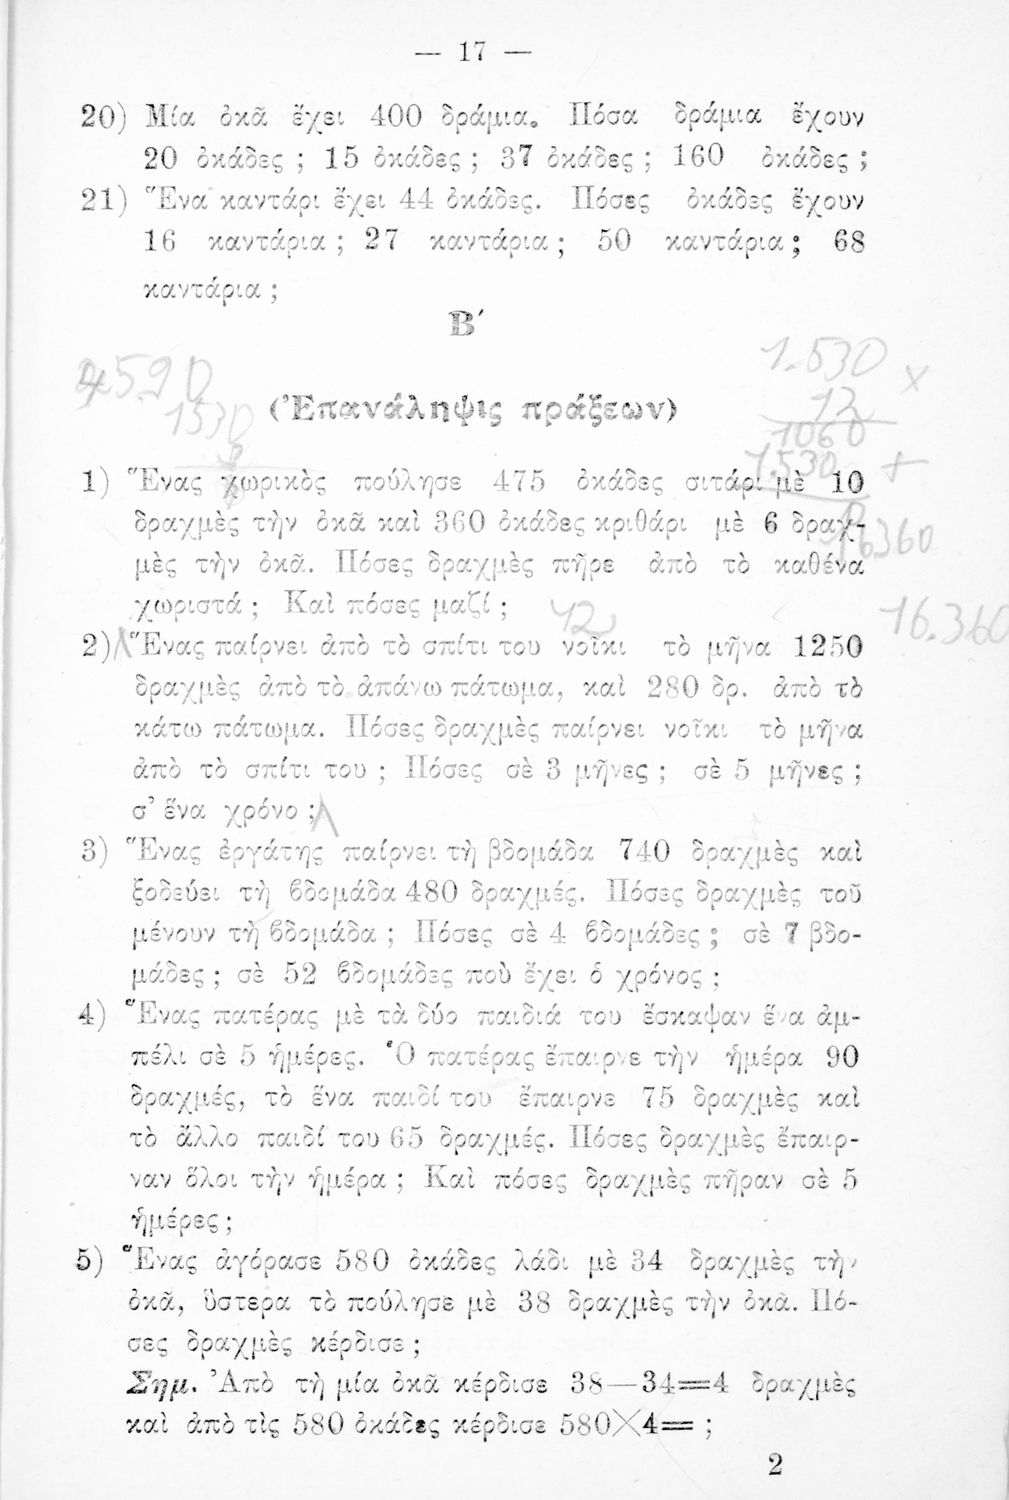 — 17 —
20) Μία ὀκᾶ ἔχει 400 δράμια. Πόσα δράμια ἔχουν
20 ὀκάδες ; 15 ὀκάδες ; 37 ὀκάδες ; 160 ὀκάδες ;
21) Ἕνα καντάρι ἔχει 44 ὀκάδες. Πόσες ὀκάδες ἔχουν
16 καντάρια ; 27 καντάρια ; 50 καντάρια ; 68
καντάρια ;
Β΄
1.530 ×
4590
12
1530
(Ἐπανάληψις πράξεων)
1060
1.530 +
1) Ἕνας χωρικὸς πούλησε 475 ὀκάδες σιτάρι μὲ 10
δραχμὲς τὴν ὀκᾶ καὶ 360 ὀκάδες κριθάρι μὲ 6 δραχ-
16360
μὲς τὴν ὀκᾶ. Πόσες δραχμὲς πῆρε ἀπὸ τὸ καθένα
χωριστά ; Καὶ πόσες μαζί ;
12
16.360
2) Ἕνας παίρνει ἀπὸ τὸ σπίτι του νοῖκι τὸ μῆνα 1250
δραχμὲς ἀπὸ τὸ ἀπάνω πάτωμα, καὶ 280 δρ. ἀπὸ τὸ
κάτω πάτωμα. Πόσες δραχμὲς παίρνει νοῖκι τὸ μῆνα
ἀπὸ τὸ σπίτι του ; Πόσες σὲ 3 μῆνες ; σὲ 5 μῆνες ;
σ' ἕνα χρόνο ;
3) Ἕνας ἐργάτης παίρνει τὴ βδομάδα 740 δραχμὲς καὶ
ξοδεύει τὴ ϐδομάδα 480 δραχμές. Πόσες δραχμὲς τοῦ
μένουν τὴ ϐδομάδα ; Πόσες σὲ 4 ϐδομάδες ; σὲ 7 βδο-
μάδες ; σὲ 52 ϐδομάδες ποὺ ἔχει ὁ χρόνος ;
4) Ἕνας πατέρας μὲ τὰ δύο παιδιά του ἔσκαψαν ἕνα ἀμ-
πέλι σὲ 5 ἡμέρες. Ὁ πατέρας ἔπαιρνε τὴν ἡμέρα 90
δραχμές, τὸ ἕνα παιδί του ἔπαιρνε 75 δραχμὲς καὶ
τὸ ἄλλο παιδί του 65 δραχμές. Πόσες δραχμὲς ἔπαιρ-
ναν ὅλοι τὴν ἡμέρα ; Καὶ πόσες δραχμὲς πῆραν σὲ 5
ἡμέρες ;
5) Ἕνας ἀγόρασε 580 ὀκάδες λάδι μὲ 34 δραχμὲς τὴν
ὀκᾶ, ὕστερα τὸ πούλησε μὲ 38 δραχμὲς τὴν ὀκᾶ. Πό-
σες δραχμὲς κέρδισε ;
Σημ. Ἀπὸ τὴ μία ὀκᾶ κέρδισε 38—34=4 δραχμὲς
καὶ ἀπὸ τὶς 580 ὀκάδες κέρδισε 580×4= ;
2